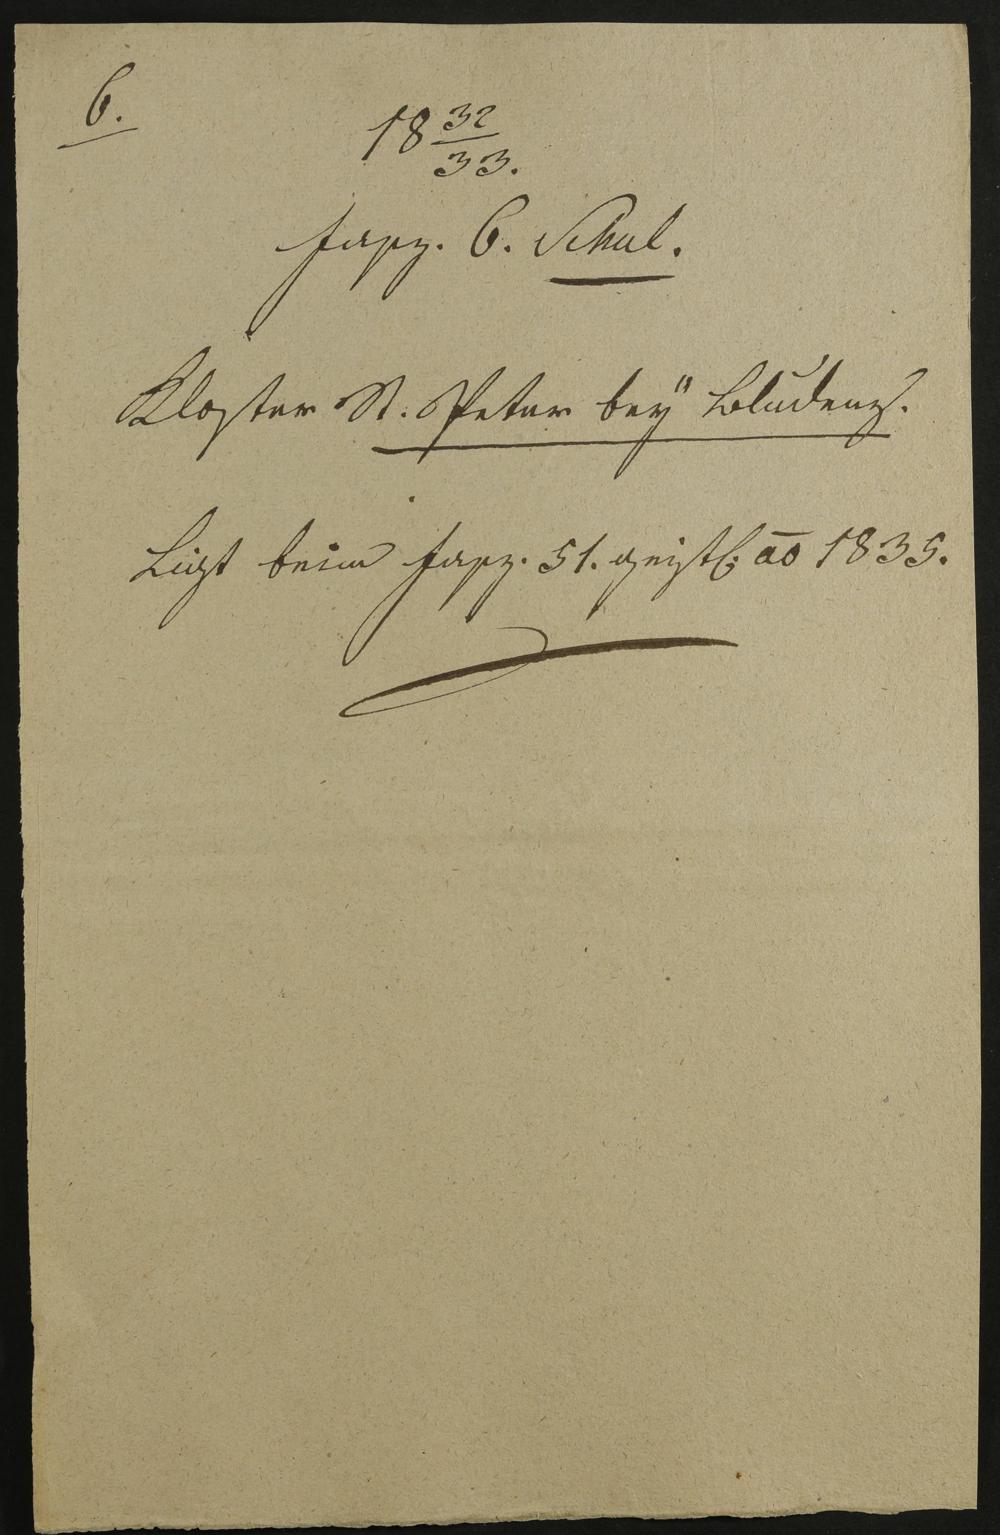 6.
18 32/33.
Fasz. 6. Schul.
Kloster St. Peter beÿ Bludenz.
Ligt beim Fasz. 51. geistl. ao 1835.